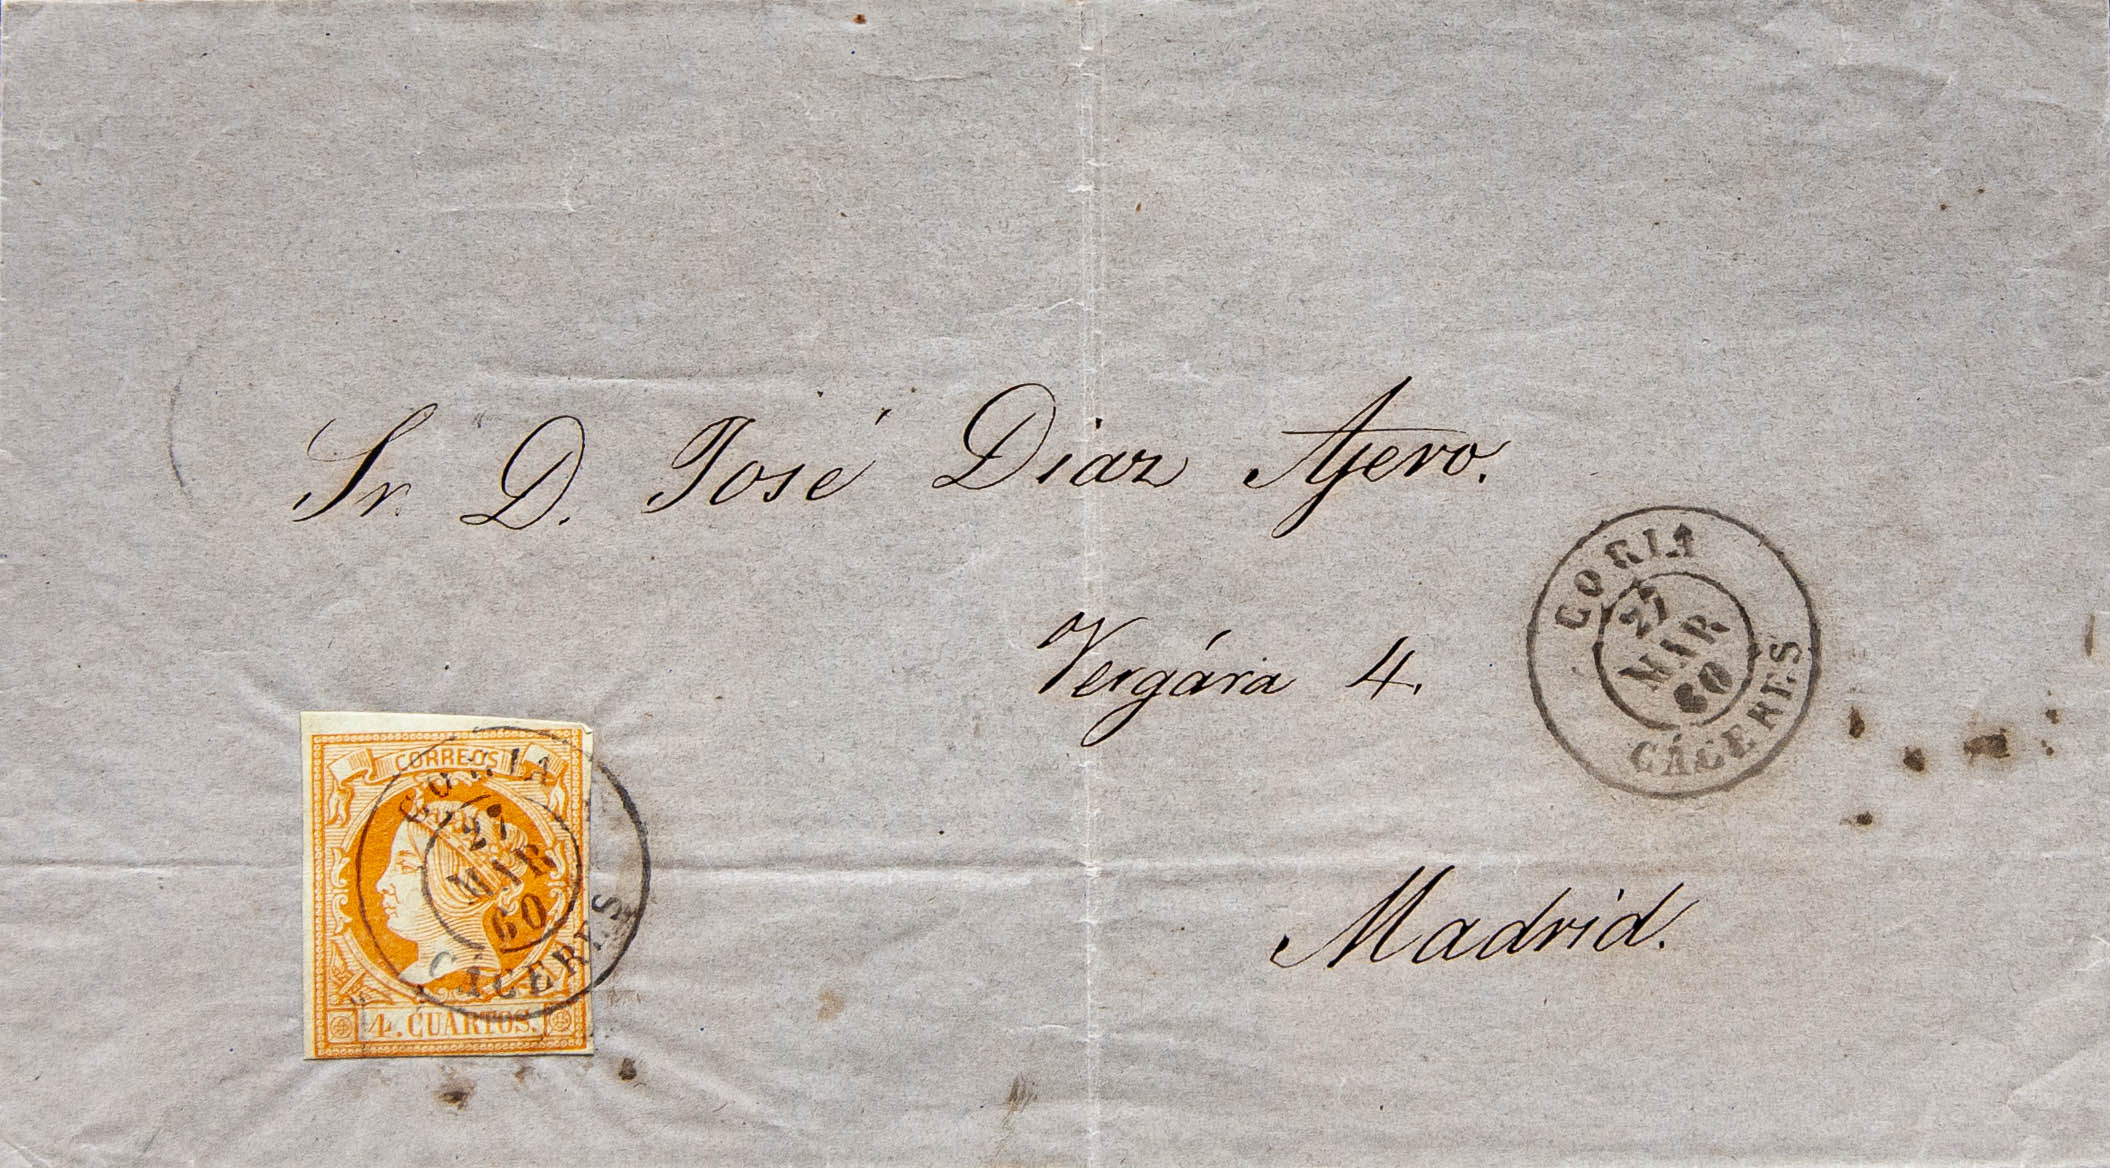 Sr. D. José Diaz Agero.
Vergára 4.
Madrid.
CORIA
27
MAR
60
CÁCERES
CORREOS
CORIA
27
MAR
60
CÁCERES
4. CUARTOS.